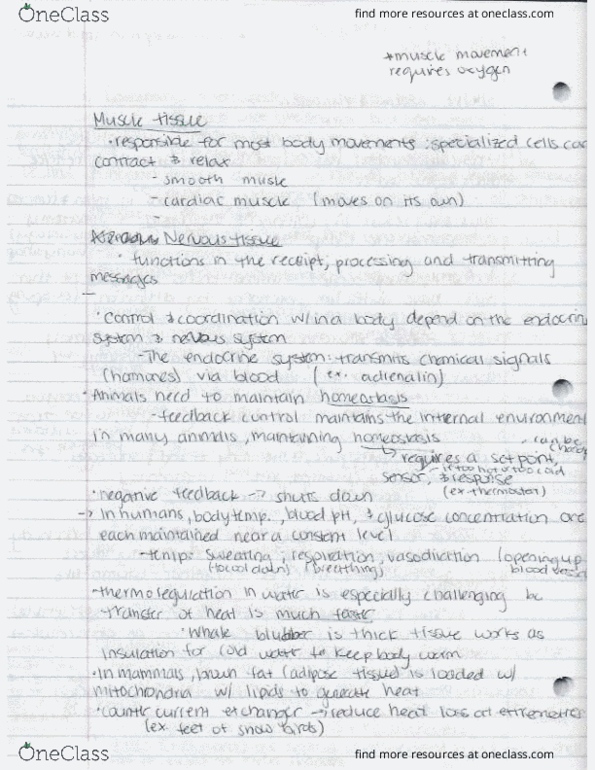 OneClass
find more resources at oneclass.com
*muscle movement
requires oxygen
Muscle tissue
• responsible for most body movements : specialized cells can
contract & relax
- smooth muscle
- cardiac muscle (moves on its own)
Nervous tissue
• functions in the receipt, processing and transmitting
messages
• Control & coordination w/in a body depend on the endocrine
system & nervous system
- The endocrine system: transmits chemical signals
(hormones) via blood (ex. adrenalin)
• Animals need to maintain homeostasis
- feedback control maintains the internal environment
in many animals, maintaining homeostasis
can be
requires a set point,
- if too hot or too cold
sensor, & response
(ex thermostat)
• negative feedback -> shuts down
-> In humans, body temp., blood pH, & glucose concentration are
each maintained near a constant level
- temp: sweating, respiration, vasodilation (opening up
(to cool down) (breathing) blood vessels
• thermoregulation in water is especially challenging bc
transfer of heat is much faster
• Whale blubber is thick tissue works as
insulation for cold water to keep body warm
• In mammals, brown fat (adipose tissue) is loaded w/
mitochondria w/ lipids to generate heat
• counter current exchanger -> reduce heat loss at extremeties
(ex. feet of snow birds)
OneClass
find more resources at oneclass.com